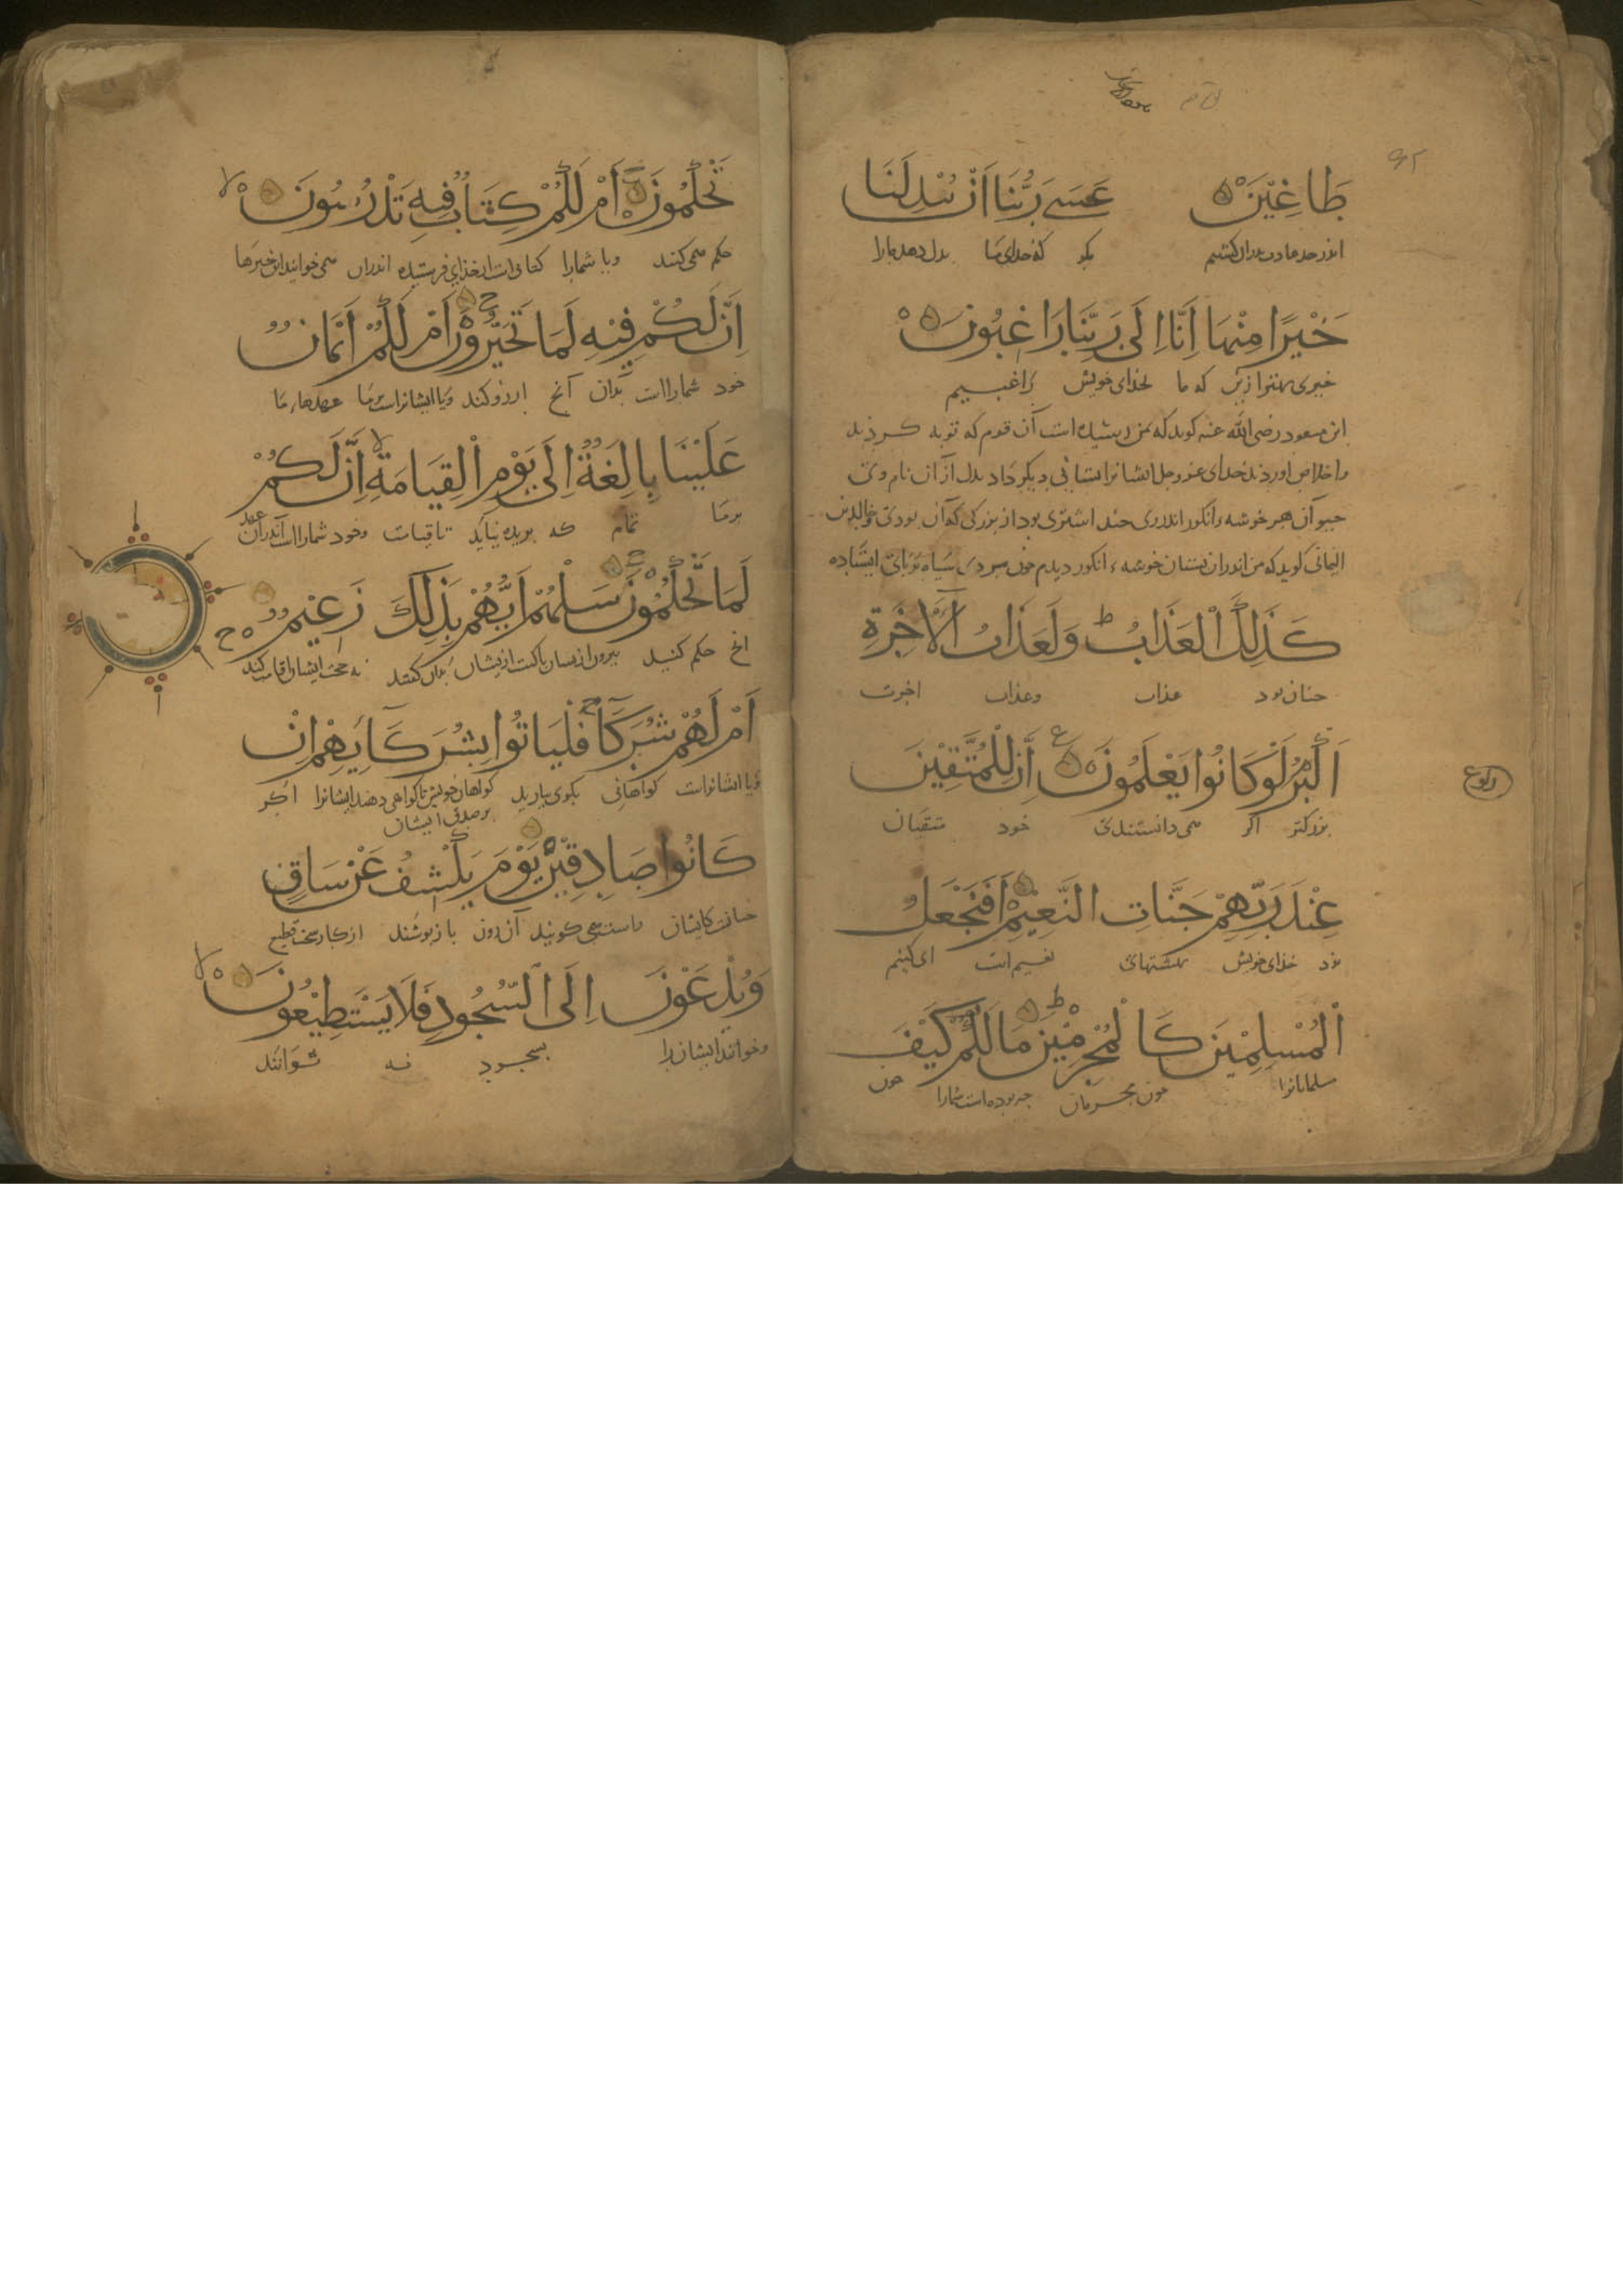 طَاغِيْنَ عَسَىٰ رَبُّنَا اَنْ يُبْدِلَنَا
بكو كه خدای ما بدل دهد مارا
خَيْرًا مِنْهَا اِنَّا اِلَى رَبِّنَا رَاغِبُونَ
خیری بهتر ازین که ما بخدای خویش راغبیم
ابن مسعود رضی الله عنه کوید که بمن رسیده است آن قوم که توبه کردند
واخلاص اوردند خدای عزوجل ایشانرا بستانی دیکر داد بدل از آن نام وی
حیوان هر خوشه انکور اندروی چند اشتری بود از بزرکی که آن بودی خالد بن
الیمانی کوید که من اندران بستان خوشهٔ انکور دیدم چون مردی سیاه بر پای ایستاده
كَذَلِكَ الْعَذَابُ وَلَعَذَابُ الْاٰخِرَةِ
چنان بود عذاب وعذاب اخرت
اَكْبَرُ لَوْ كَانُوا يَعْلَمُونَ اِنَّ لِلْمُتَّقِيْنَ
ركوع
بزرکتر اکر می دانستندی خود متقیان
عِنْدَ رَبِّهِمْ جَنَّاتِ النَّعِيْمِ اَفَنَجْعَلُ
نزد خدای خویش بهشتهای نعیم است ای کنیم
الْمُسْلِمِيْنَ كَالْمُجْرِمِيْنَ مَالَكُمْ كَيْفَ
مسلمانانرا چون مجرمان چه بوده است شمارا چون
تَحْكُمُونَ اَمْ لَكُمْ كِتَابٌ فِيْهِ تَدْرُسُونَ
حکم می کنند ویا شمارا کتابی است از خدای فرستیده اندران می خوانید این خبرها
اِنَّ لَكُمْ فِيْهِ لَمَا تَخَيَّرُوْنَ اَمْ لَكُمْ اَيْمَانٌ
خود شمارا است بدان آنچ ارزو کنند ویا ایشانراست بر ما عهدها ما
عَلَيْنَا بِالِغَةٌ اِلَى يَوْمِ الْقِيَامَةِ اِنَّ لَكُمْ
بر ما تمام که بریده نیاید تا قیامت وخود شمارا است اندران عهد
لَمَا تَحْكُمُوْنَ سَلْهُمْ اَيُّهُمْ بِذَلِكَ زَعِيْمٌ
انچ حکم کنید
اَمْ لَهُمْ شُرَكَآءُ فَلْيَاتُوا بِشُرَكَآئِهِمْ اِنْ
ویا ایشانراست کواهانی بکوی بیارید کواهان خویش تا کواهی دهند ایشانرا اکر
بر صدق ایشان
كَانُوا صَادِقِيْنَ يَوْمَ يُكْشَفُ عَنْ سَاقٍ
راست می کویند آن روز باز پوشند از کار سخت
وَيُدْعَوْنَ اِلَى السُّجُودِ فَلَا يَسْتَطِيْعُونَ
وخوانند ایشان را بسجود نه توانند